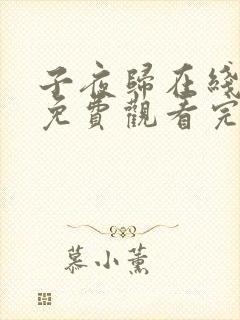 子夜歸在綫
免費觀看完
慕小薰